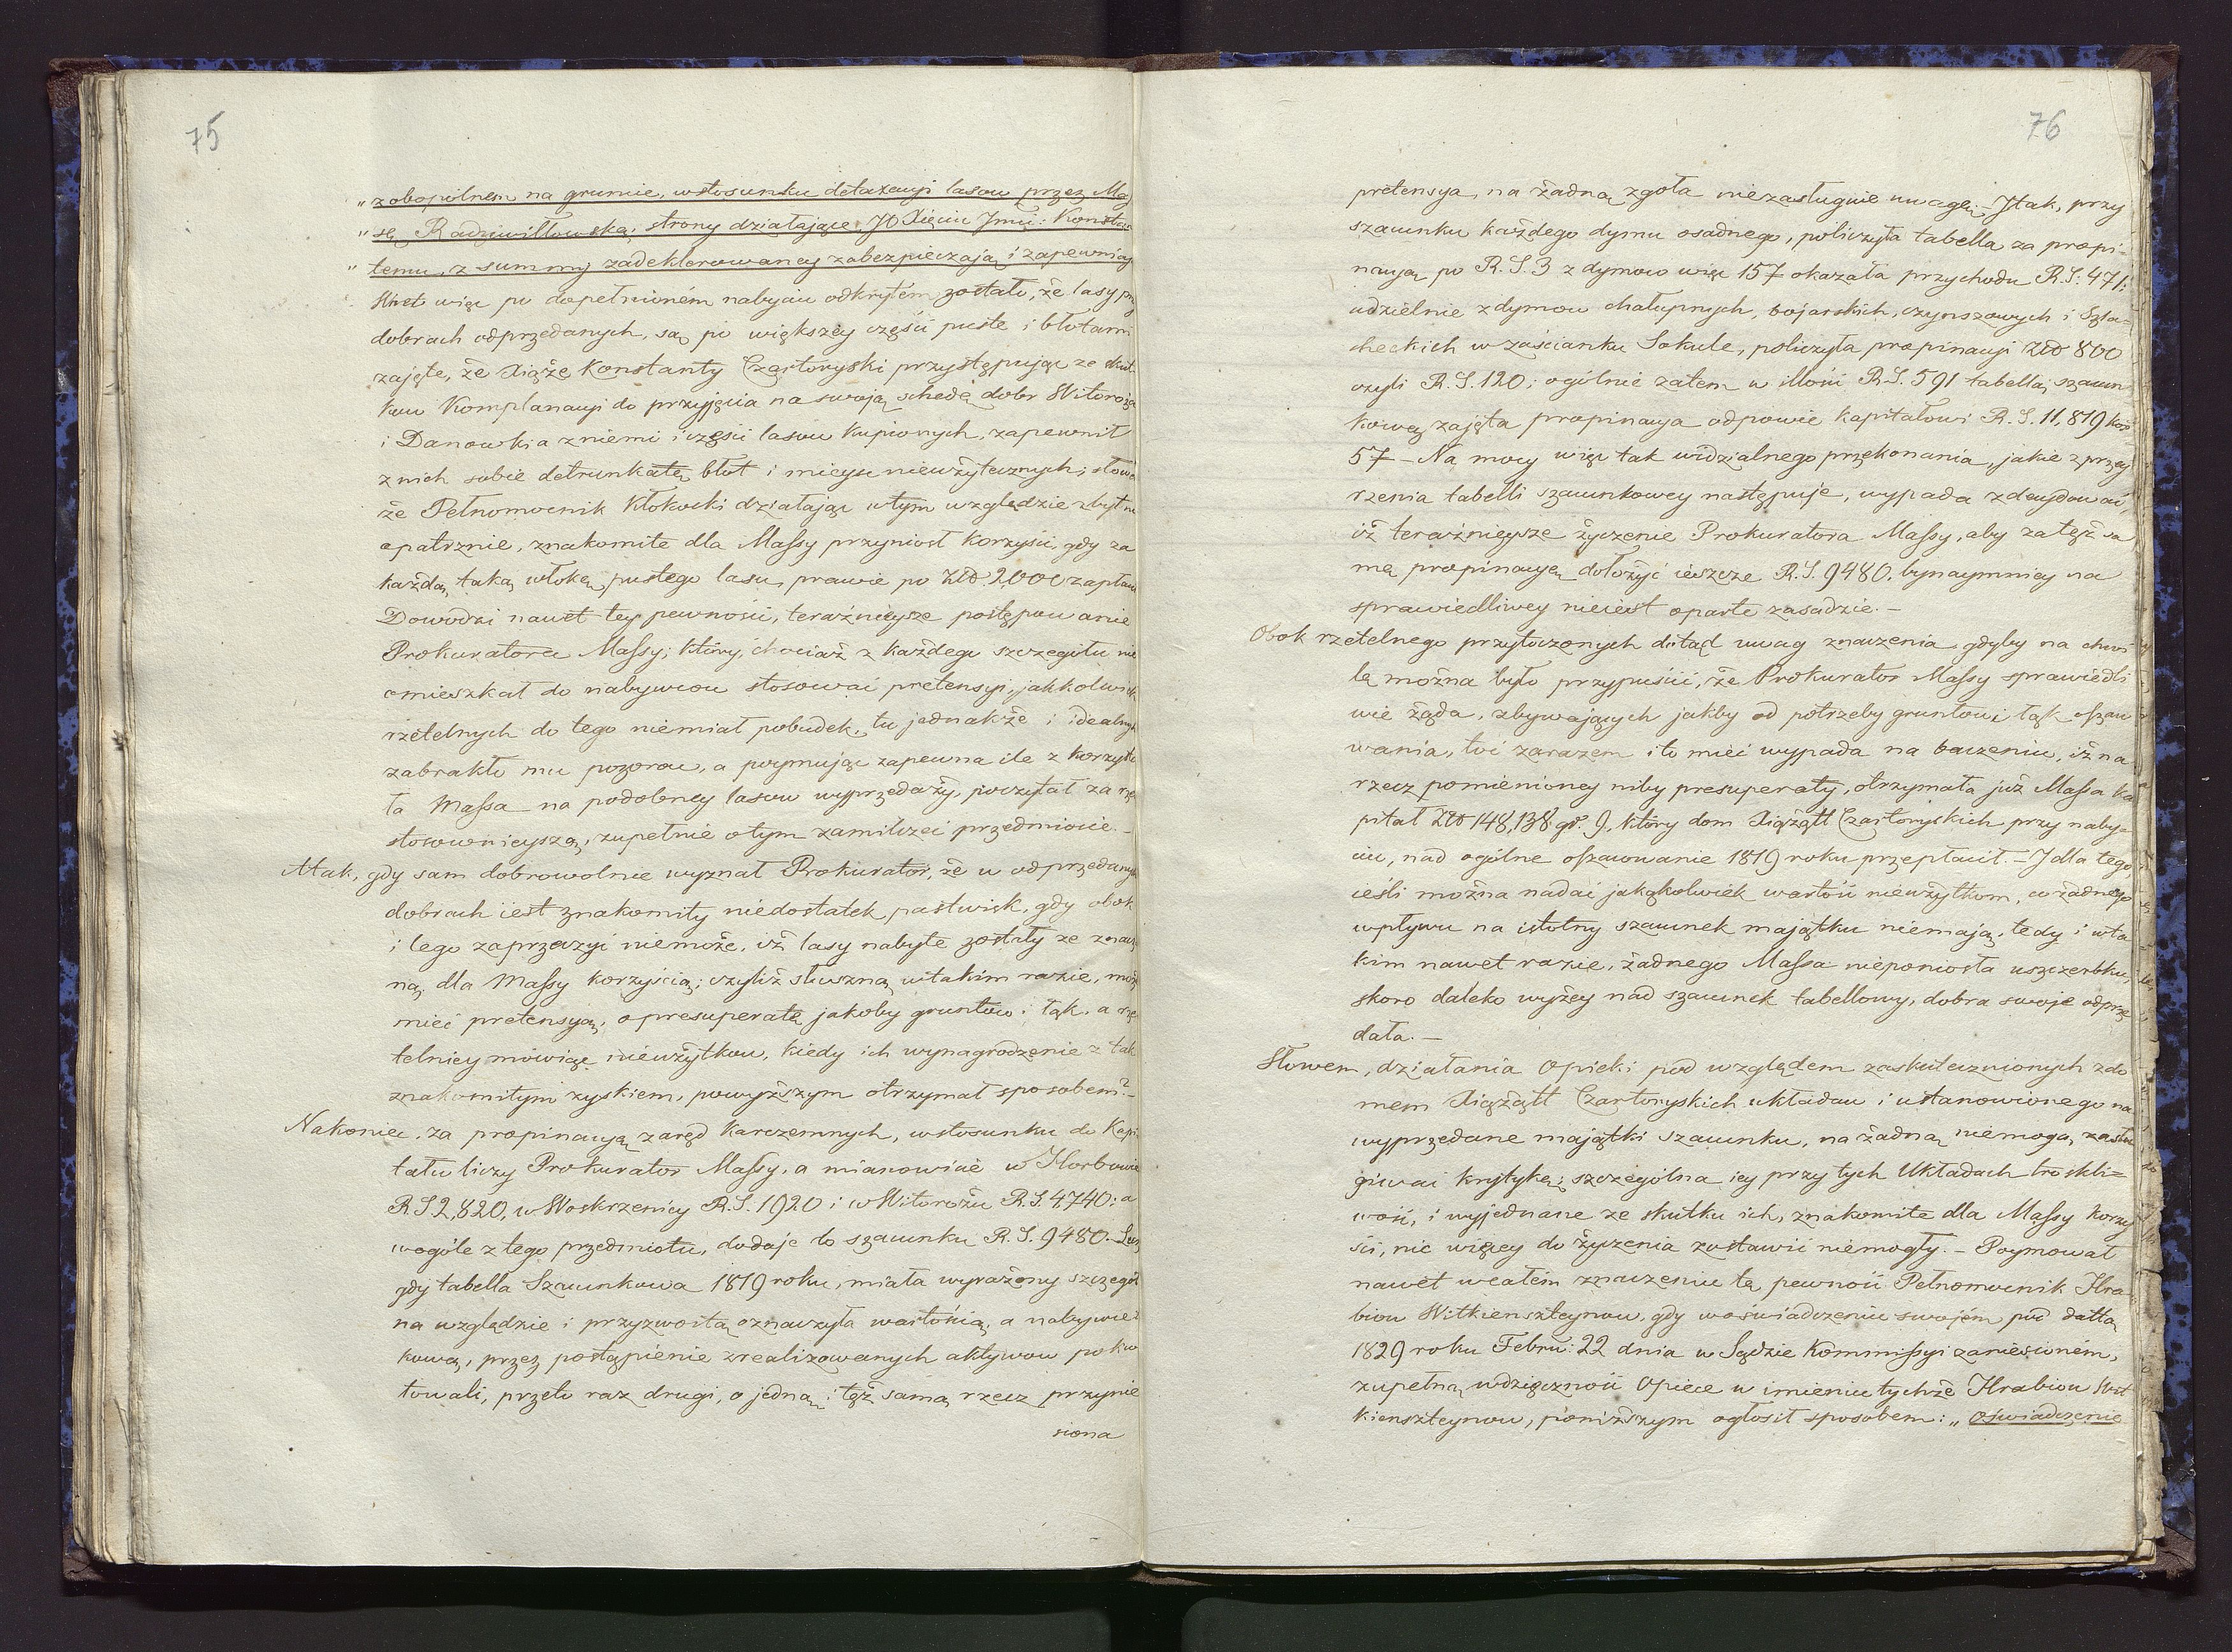 75
„zobopolnem na gruncie, wstosunku detaxacyi lasow przez Mas
„sę Radziwiłłowską, strony działające, JO Xięciu Jmci: Konstan
„temu, z summy zadeklarowaney zabezpieczają i zapewniają
Wnet więc po dopełnioném nabyciu odkrytém zostało, że lasy przy
dobrach odprzedanych, są po większéy części puste i błotami
zajęte, że Xiąże Konstanty Czartoryski przystępując ze skut
kow Komplanacyi do przyjęcia na swoją schedę dobr Witoroża
i Danowki a zniemi i części lasow kupionych, zapewnił
znich sobie detrunkatę błot i mieysc nieużytecznych; słowem
że Pełnomocnik Kłokocki działając wtym względzie zbyt
opatrznie, znakomite dla Massy przyniosł korzyści, gdy za
każdą taką włokę pustego lasu, prawie po Złł 2,000 zapłacono
Dowodzi nawet tey pewności, teraźnieysze postępowanie
Prokuratora Massy; który, chociaż z każdego szczegółu nie
omieszkał do nabywcow stosować pretensyi, jakkolwiek
rzetelnych do tego niemiał pobudek, tu jednakże i idealnych
zabrakło mu pozorow, a poymując zapewna ile z korzysta
ła Massa na podobney lasow wyprzedaży, poczytał za rzecz
stosownieyszą, zupełnie otym zamilczeć przedmiocie. –
A tak, gdy sam dobrowolnie wyznał Prokurator, że w odprzedanych
dobrach iest znakomity niedostatek pastwisk, gdy obok
i tego zaprzeczyć niemoże, iż lasy nabyte zostały ze znacz
ną dla Massy korzyścią; czyliż słuszną wtakim razie, może
mieć pretensyą, o presuperatę jakoby gruntow i łąk, a rze
telniey mówiąc nieużytkow, kiedy ich wynagrodzenie z tak
znakomitym zyskiem, powyższym otrzymał sposobem? –
Nakoniec, za propinacyą zaręd karczemnych, wstosunku do Kapi
tału liczy Prokurator Massy, a mianowicie w Horbowie
R S 2,820, w Woskrzenicy R.S. 1920 i w Witorożu R.S. 4740; a
wogóle z tego przedmiotu, dodaje do szacunku R.S. 9480. – Lecz
gdy tabella Szacunkowa 1819 roku, miała wyrażony szczegół
na względzie i przyzwoitą oznaczyła wartością, a nabywcy
kową, przez postąpienie zrealizowanych aktywow pokwi
towali, przeto raz drugi, o jedną i tęż samą rzecz przynie
siona
76
pretensya, na żadną zgoła niezasługuie uwagę. – Itak, przy
szacunku każdego dymu osadnego, policzyła tabella za propi-
nacyą po R.S. 3 z dymow więc 157 okazała przychodu R.S. 471;
udzielnie zdymow chałupnych, bojarskich, czynszowych i Szla-
checkich w zaścianku Sokule, policzyła propinacyi Złł 800
czyli R.S. 120; ogólnie zatem w illości R.S. 591 tabellą szacun
kową zajęta propinacya odpowie kapitałowi R.S. 11,819 kop
57 – Na mocy więc tak widzialnego przekonania, jakie zprzey
rzenia tabelli szacunkowey następuje, wypada zdecydować,
iż teraźnieysze życzenie Prokuratora Massy, aby zatęż sa
mę propinacyą dołożyć ieszcze R.S. 9480. bynaymniey na
sprawiedliwey nieiest oparte zasadzie. –
Obok rzetelnego przytoczonych dotąd uwag znaczenia, gdyby na chwi
lę można było przypuścić, że Prokurator Massy sprawiedli
wie żąda, zbywających jakby od potrzeby gruntow i łąk oszaco
wania, toć zarazem i to mieć wypada na baczeniu, iż na
rzecz pomienioney niby presuperaty, otrzymała już Massa ka
pitał Złł 148,138 gr. 9, który dom Xiążątt Czartoryskich przy naby-
ciu, nad ogólne oszacowanie 1819 roku przepłacił. – I dla tego,
ieśli można nadać jakąkolwiek wartość nieużytkom, co żadnego
wpływu na istotny szacunek majątku niemają, tedy i wta
kim nawet razie, żadnego Massa nieponiosła uszczerbku,
skoro daleko wyżey nad szacunek tabellowy, dobra swoje odprze
dała. –
Słowem, działania Opieki pod względem zaskutecznionych zdo
mem Xiążątt Czartoryskich układow i ustanowionego na
wyprzedane majątki szacunku, na żadną niemogą zasłu
giwać krytykę; szczególna iey przy tych Układach troskli=
wość, i wyjednane ze skutku ich, znakomite dla Massy korzy
ści, nic więcey do życzenia zostawić niemogły. – Poymował
nawet wcałém znaczeniu tę pewność Pełnomocnik Hra-
biow Witkiensztejnow, gdy woświadczeniu swojém pod dattą
1829 roku Febru: 22 dnia w Sądzie Kommissyi zaniesioném,
zupełną wdzięczność Opiece w imieniu tychże Hrabiow Wit
kiensztejnow, poniższym ogłosił sposobem: „Oświadczenie